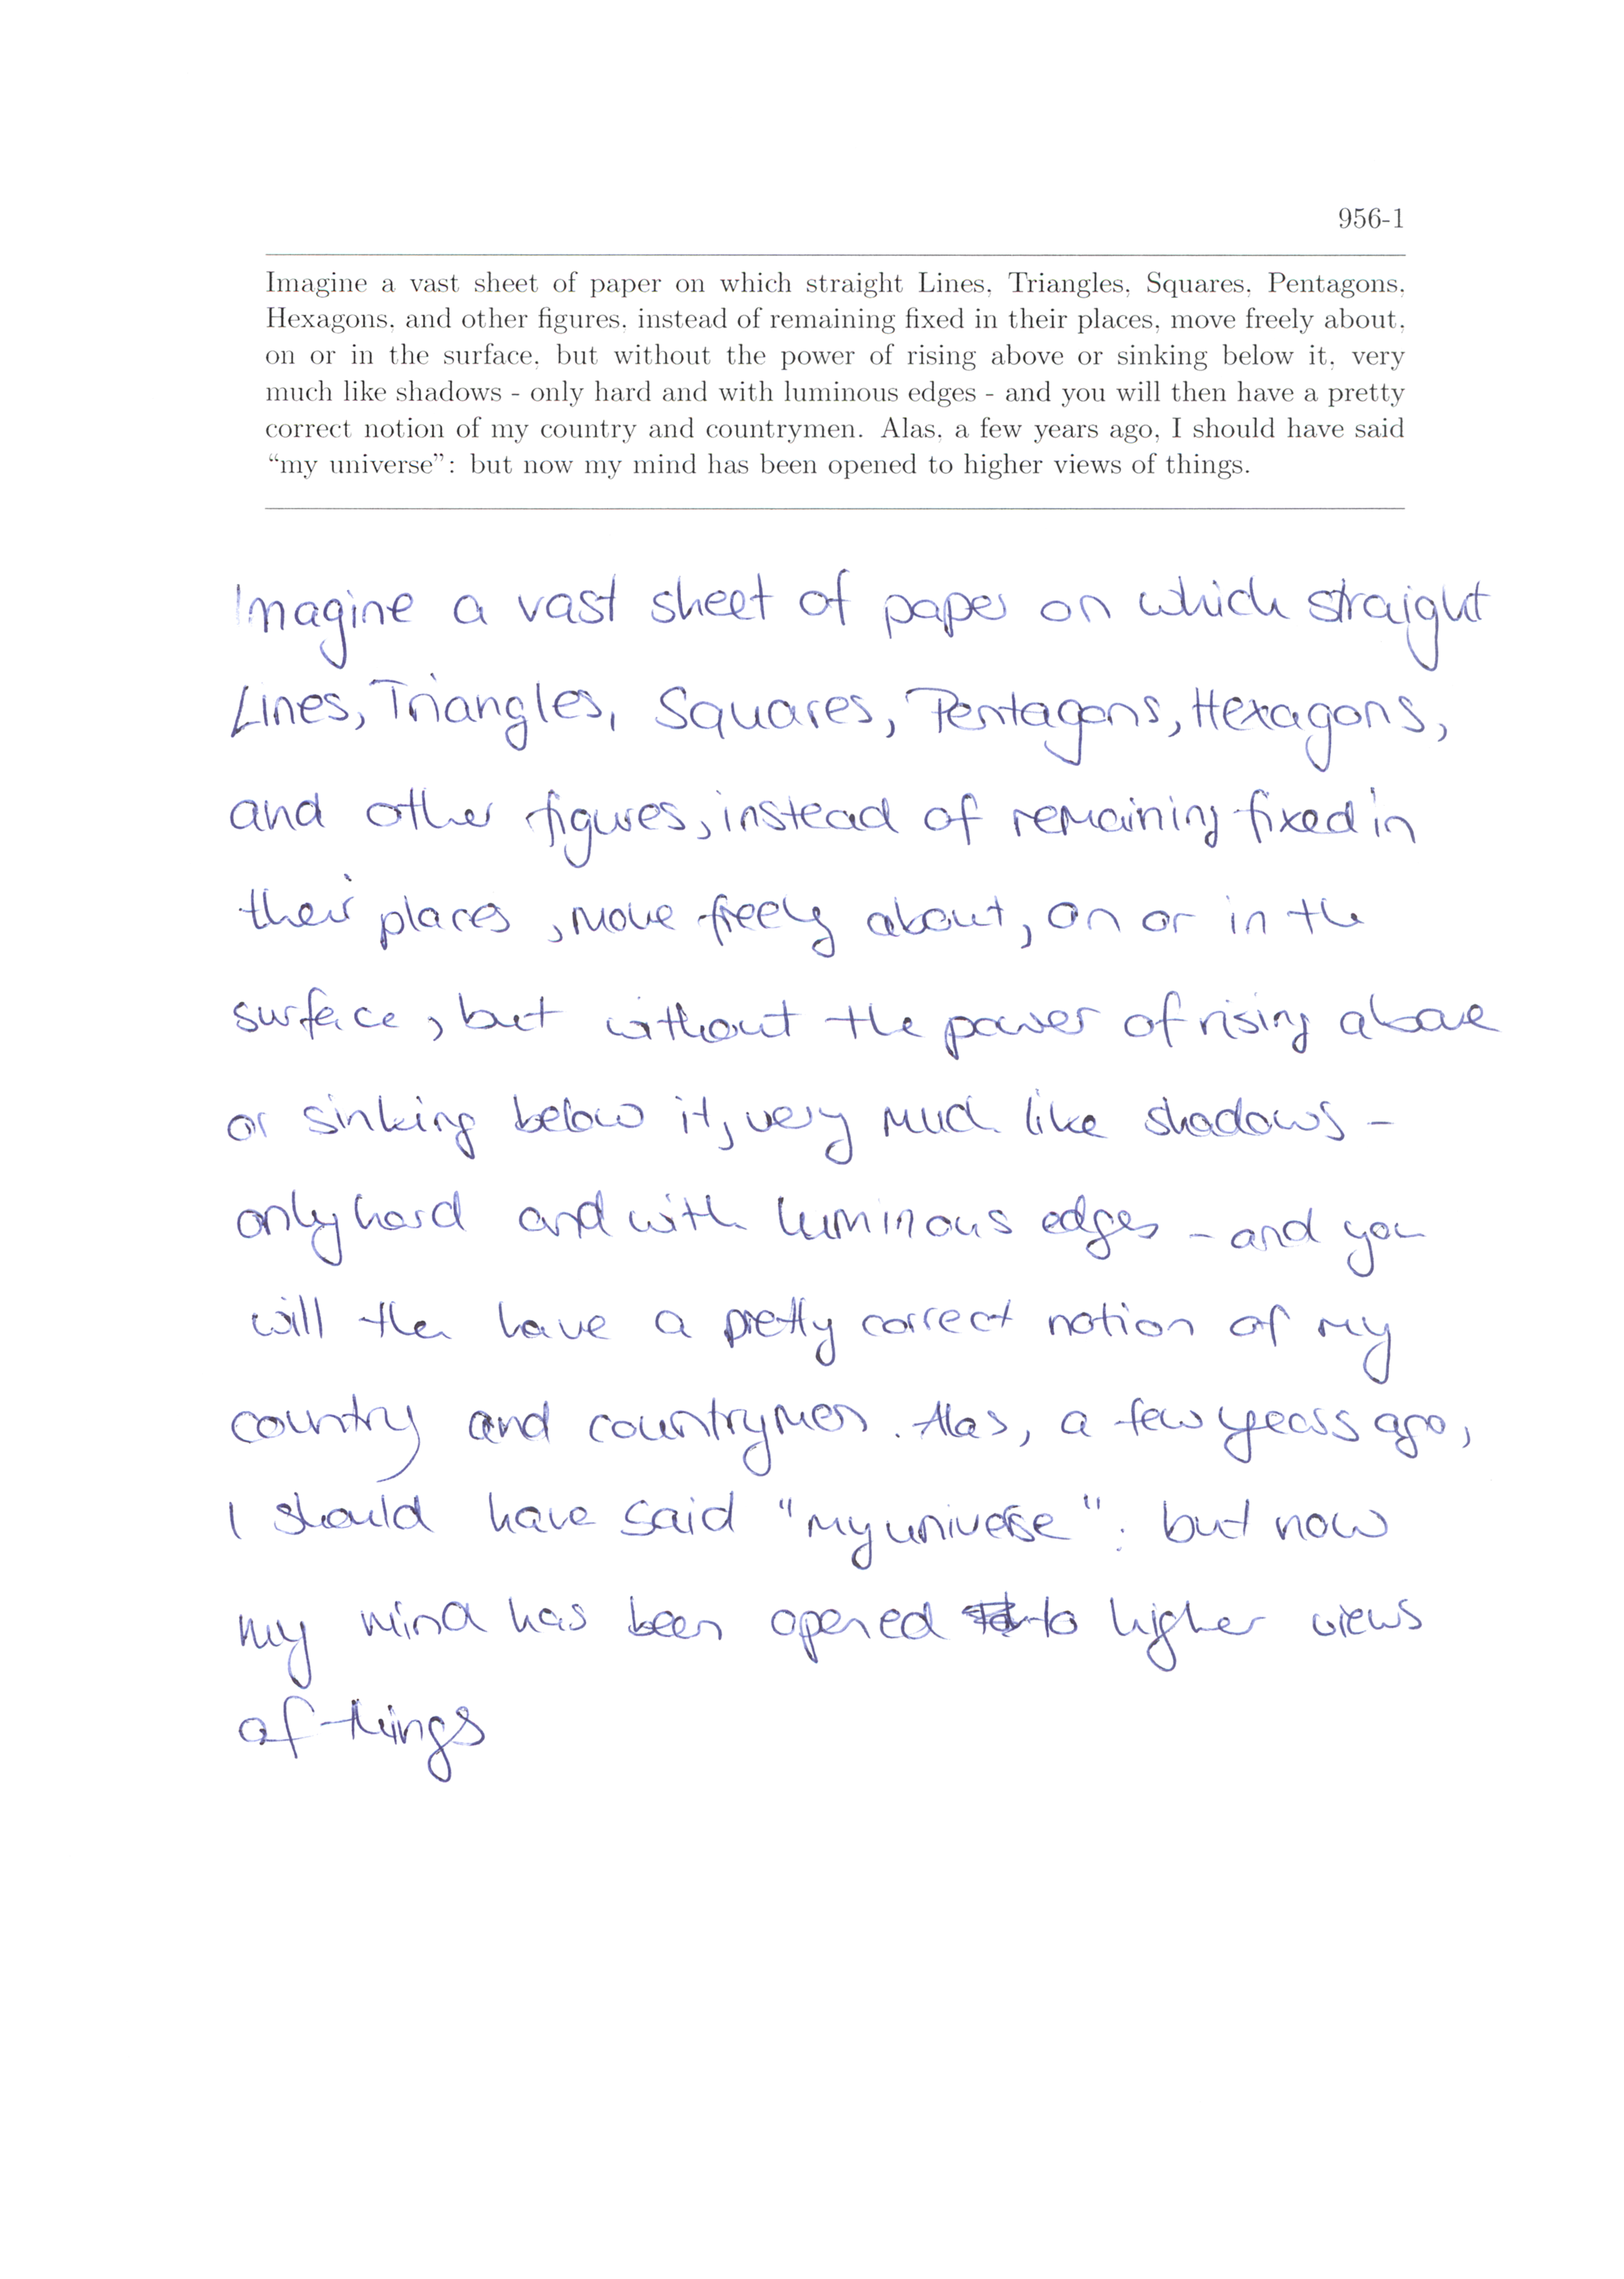 956-1
Imagine a vast sheet of paper on which straight Lines, Triangles, Squares, Pentagons,
Hexagons, and other figures, instead of remaining fixed in their places, move freely about,
on or in the surface, but without the power of rising above or sinking below it, very
much like shadows - only hard and with luminous edges - and you will then have a pretty
correct notion of my country and countrymen. Alas, a few years ago, I should have said
“my universe”: but now my mind has been opened to higher views of things.
Imagine a vast sheet of paper on which straight
Lines, Triangles, Squares, Pentagons, Hexagons,
and other figures, instead of remaining fixed in
their places, move freely about, on or in the
surface, but without the power of rising above
or sinking below it, very much like shadows -
only hard and with luminous edges - and you
will then have a pretty correct notion of my
country and countrymen. Alas, a few years ago,
I should have said "my universe": but now
my mind has been opened to higher views
of things